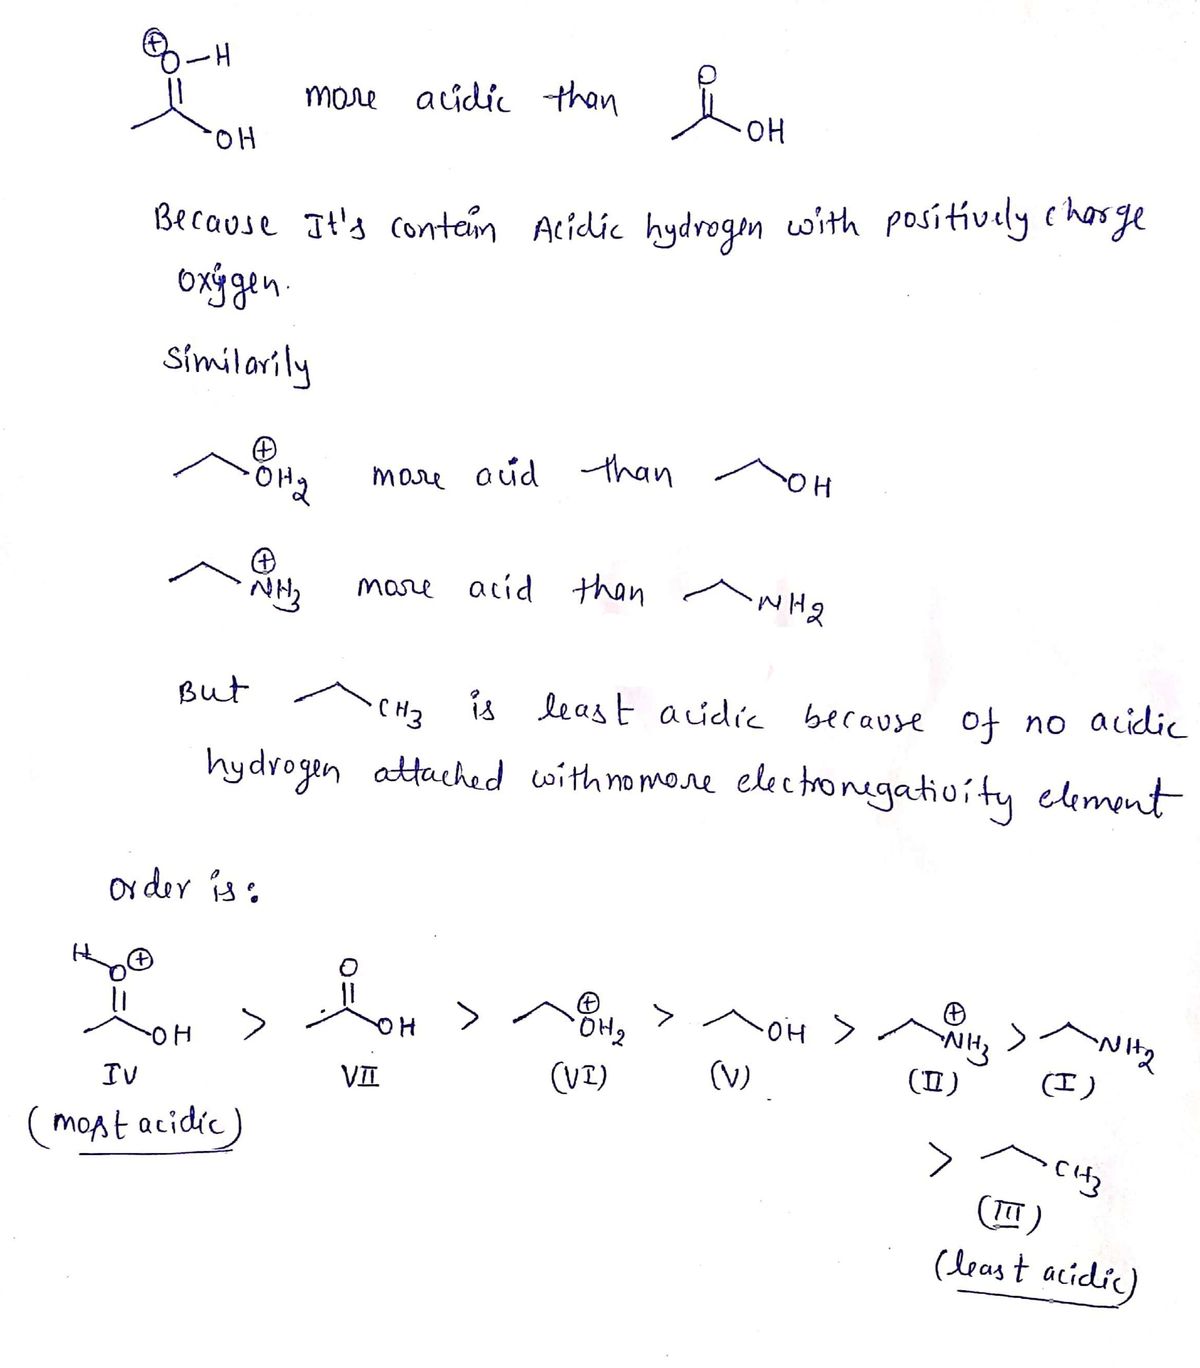 ⊕
O-H
OH
more acidic than
O
OH
Because It's contein Acidic hydrogen with positively charge
oxygen.
Similarily
⊕
OH2 more acid than OH
⊕
NH3 more acid than NH2
But CH3 is least acidic because of no acidic
hydrogen attached with no more electronegativity element
order is:
H O ⊕
OH > O OH > ⊕ OH2 > OH > ⊕ NH3 > NH2
IV VII (VI) (V) (II) (I)
(most acidic)
> CH3
(III)
(least acidic)